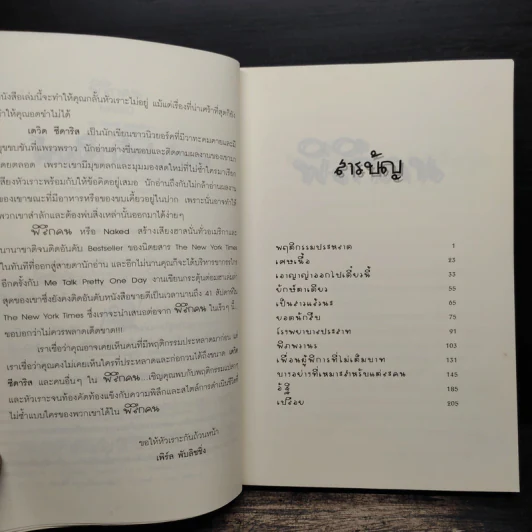 หนังสือเล่มนี้จะทำให้คุณกลั้นหัวเราะไม่อยู่ แม้แต่เรื่องที่น่าเศร้าที่สุดก็ยัง
ทำให้คุณอดขำไม่ได้
เดวิด ซีดาริส เป็นนักเขียนชาวนิวยอร์คที่มีวาทะคมคายและมี
มุขขบขันที่แพรวพราว นักอ่านต่างชื่นชอบและติดตามผลงานของเขามา
โดยตลอด เพราะเขามีมุขตลกและมุมมองสดใหม่ที่ไม่ซ้ำใครมาเรียก
เสียงหัวเราะพร้อมกับให้ข้อคิดอยู่เสมอ นักอ่านถึงกับไม่กล้าอ่านผลงาน
ของเขาขณะที่มีอาหารหรือของขบเคี้ยวอยู่ในปาก เพราะนั่นอาจทำให้
พวกเขาสำลักและต้องพ่นสิ่งเหล่านั้นออกมาได้ง่ายๆ
พิลึกคน หรือ Naked สร้างเสียงฮาสนั่นทั่วอเมริกาและ
นานาชาติจนติดอันดับ Bestseller ของนิตยสาร The New York Times
ในทันทีที่ออกสู่สายตานักอ่าน และอีกไม่นานคุณก็จะได้บริหารขากรรไกร
อีกครั้งกับ Me Talk Pretty One Day งานเขียนกระตุ้นต่อมฮาเล่มล่า
สุดของเขาซึ่งยังคงติดอันดับหนังสือขายดีเป็นเวลานานถึง 41 สัปดาห์ใน
The New York Times ซึ่งเราจะนำเสนอต่อจาก พิลึกคน ในเร็วๆ นี้
ขอบอกว่าไม่ควรพลาดเด็ดขาด!!!
เราเชื่อว่าคุณอาจเคยเห็นคนที่มีพฤติกรรมประหลาดมาก่อน แต่
เราเชื่อว่าคุณคงไม่เคยเห็นใครที่ประหลาดและก่อกวนได้ถึงขนาด เดวิด
ซีดาริส และคนอื่นๆ ใน พิลึกคน...เชิญคุณพบกับพฤติกรรมแปลกๆ
และหัวเราะจนท้องคัดท้องแข็งกับความพิลึกและสไตล์การดำเนินชีวิตที่
ไม่ซ้ำแบบใครของพวกเขาได้ใน พิลึกคน
ขอให้หัวเราะกันถ้วนหน้า
เพิร์ล พับลิชชิ่ง
สารบัญ
พฤติกรรมประหลาด 1
เศษเนื้อ 23
เอาญาญ่าออกไปเดี๋ยวนี้ 33
ยักษ์ตาเดียว 55
เป็นสาวแล้วนะ 65
ยอดนักสืบ 75
โรงพยาบาลประสาท 91
103
เพื่อนผู้พิการที่ไม่เต็มบาท 131
บางอย่างที่เหมาะสำหรับแต่ละคน 145
185
เปลือย 205